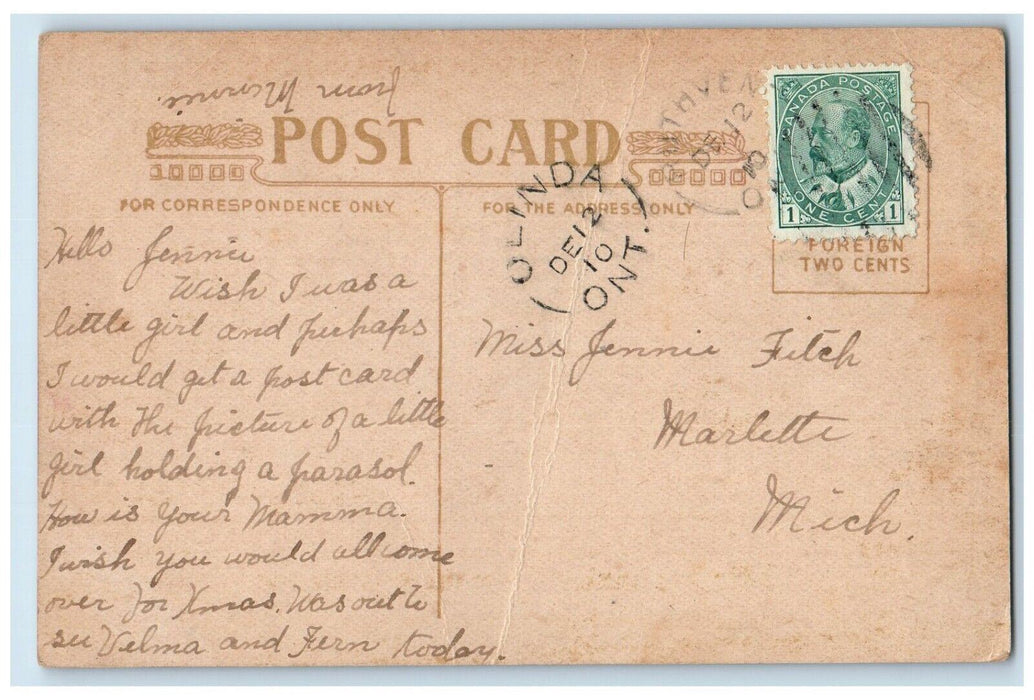 from
POST CARD
FOR CORRESPONDENCE ONLY
FOR THE ADDRESS ONLY
RUTHVEN
DE 12
10
ONT
OLINDA
DE 12
10
ONT.
CANADA POSTAGE
1 ONE CENT 1
FOREIGN
TWO CENTS
Hello Jennie
Wish I was a
little girl and perhaps
I would get a post card
with the picture of a little
girl holding a parasol.
How is your Mamma.
I wish you would all come
over for Xmas. Was out to
see Velma and Fern today.
Miss Jennie Fitch
Marlette
Mich.